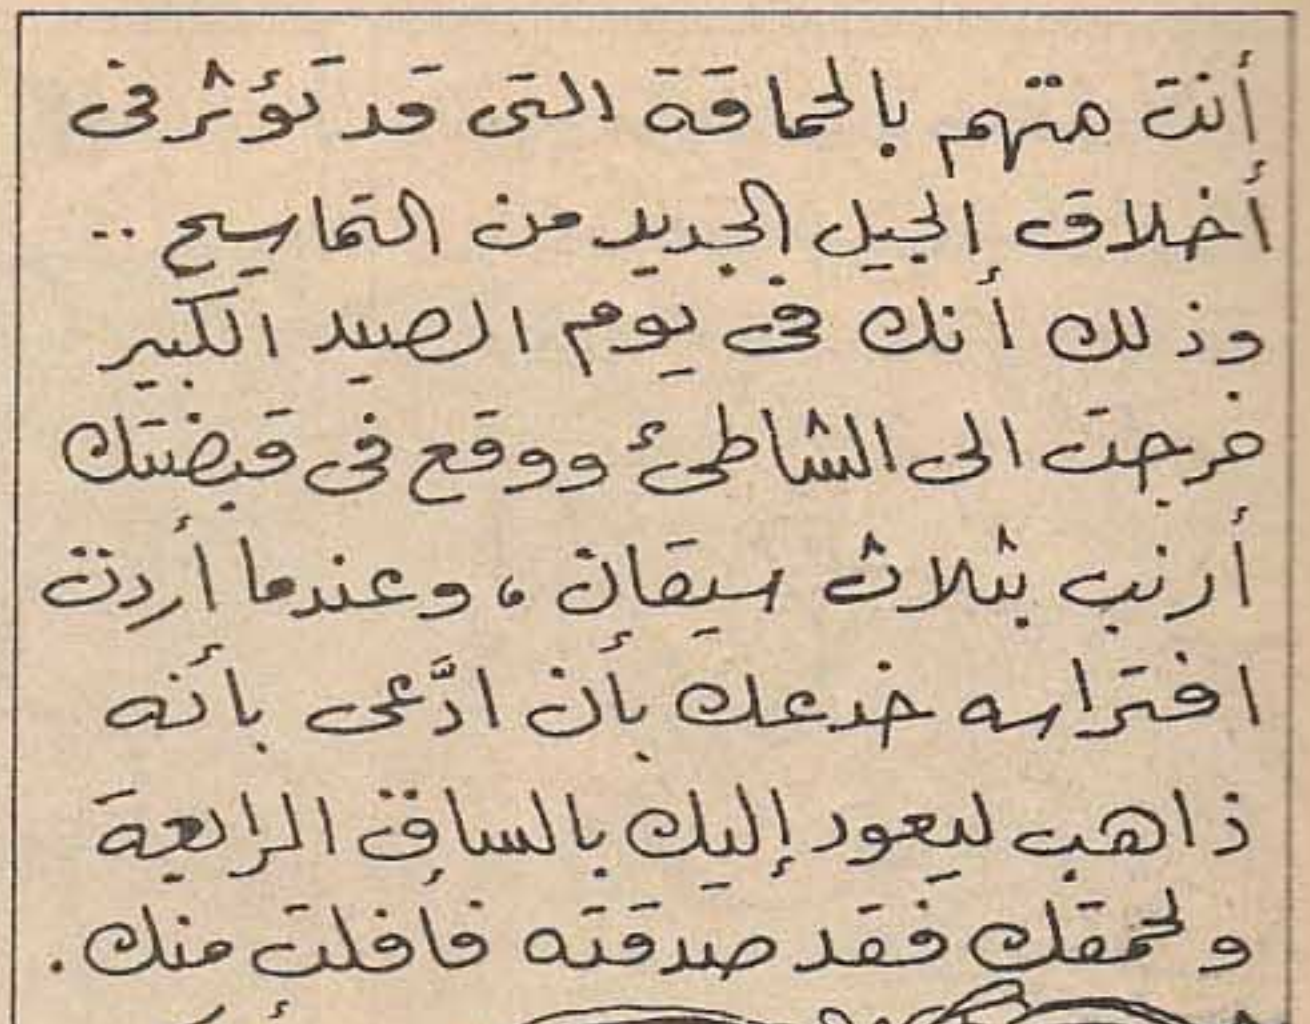 أنت متهم بالحماقة التى قد تؤثر فى
أخلاق الجيل الجديد من التماسيح ..
وذلك أنك فى يوم الصيد الكبير
خرجت الى الشاطئ ووقع فى قبضتك
أرنب بثلاث سيقان ، وعندما أردت
افتراسه خدعك بأن ادَّعى بأنه
ذاهب ليعود إليك بالساق الرابعة
ولحمقك فقد صدقته فأفلت منك .